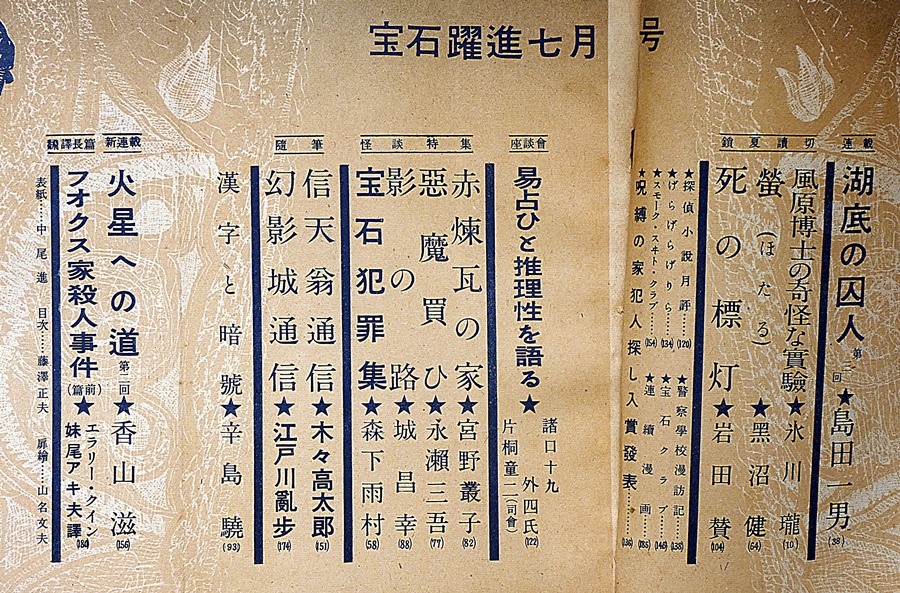 宝石躍進七月号
連載
湖底の囚人 第一回★島田一男(38)
鎖夏讀切
風原博士の奇怪な實驗★氷川瓏(10)
螢(ほたる)★黑沼健(64)
死の標灯★岩田賛(104)
★探偵小說月評……(120)
★警察學校漫訪記……(138)
★げらげらげりら……(134)
★宝石クラブ……(146)
★スモーク・スヰート・クラブ……(154)
★連續漫画……(185)
★呪縛の家犯人探し入賞發表……(136)
座談會
易占ひと推理性を語る★
諸口十九
外四氏
片桐童二(司會)(122)
怪談特集
赤煉瓦の家★宮野叢子(82)
惡魔買ひ★永瀨三吾(77)
影の路★城昌幸(88)
宝石犯罪集★森下雨村(58)
隨筆
信天翁通信★木々高太郎(51)
幻影城通信★江戸川亂步(174)
漢字と暗號★辛島驍(93)
新連載
火星への道 第二回★香山滋(156)
飜譯長篇
フオクス家殺人事件(前篇)★エラリー・クイン
妹尾アキ夫譯(184)
表紙……中尾進 目次……藤澤正夫 扉繪……山名文夫